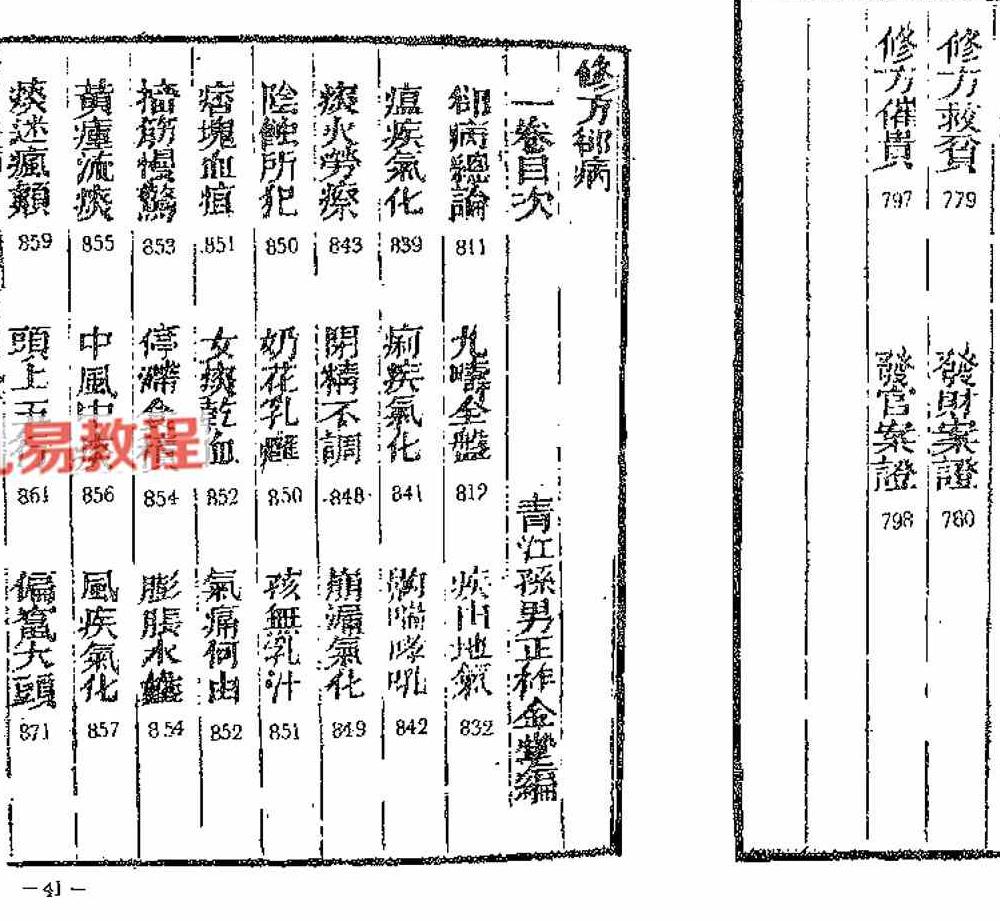 修方救貧 779 發財案證 780
修方催貴 797 發官案證 798
修方卻病
一卷目次 青江孫男正柞金 編
卻病總論 811 九疇全盤 812 疾由地氣 832
瘟疾氣化 839 痢疾氣化 841 胸喘哮吼 842
痰火勞瘵 843 閉精不調 848 崩漏氣化 849
陰蝕所犯 850 奶花乳癰 850 孩無乳汁 851
痞塊血疽 851 女癆乾血 852 氣痛何由 852
搐筋慢驚 853 停滯食積 854 膨脹水蠱 854
黃瘇流痰 855 中風中痰 856 風疾氣化 857
痰迷瘋顛 859 頭上 861 偏鴛大頭 871
易教程
—41—